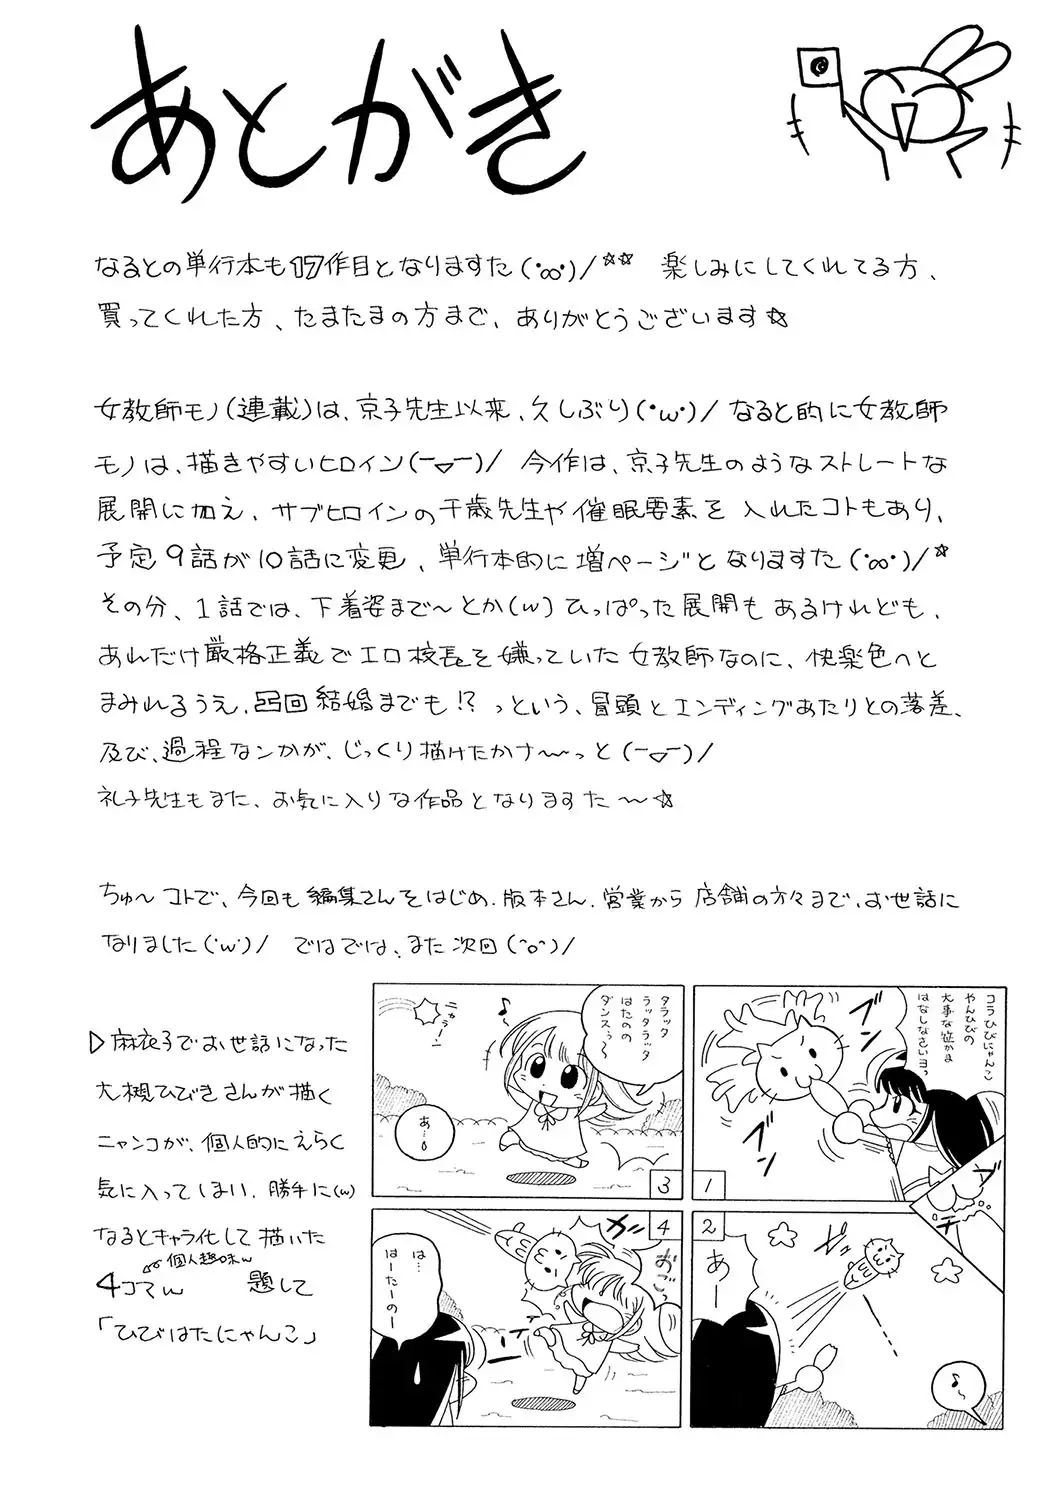 あとがき
なるとの単行本も17作目となりますた(･∞･)/☆☆ 楽しみにしてくれてる方、
買ってくれた方、たまたまの方まで、ありがとうございます☆
女教師モノ(連載)は、京子先生以来、久しぶり(･ω･)/ なると的に女教師
モノは、描きやすいヒロイン(ー▽ー)/ 今作は、京子先生のようなストレートな
展開に加え、サブヒロインの千歳先生や催眠要素を入れたコトもあり、
予定9話が10話に変更、単行本的に増ページとなりますた(･∞･)/☆
その分、1話では、下着姿まで〜とか(w)ひっぱった展開もあるけれども、
あれだけ厳格正義でエロ校長を嫌っていた女教師なのに、快楽色へと
まみれるうえ、凸凹結婚までも!?っという、冒頭とエンディングあたりとの落差、
及び、過程なンかが、じっくり描けたかナ〜〜っと(ー▽ー)/
礼子先生もまた、お気に入りな作品となりますた〜☆
ちゅ〜コトで、今回も編集さんをはじめ、版本さん、営業から店舗の方々まで、お世話に
なりました(･w･)/ ではでは、また次回(^o^)/
▷麻衣子でお世話になった
大槻ひびきさんが描く
ニャンコが、個人的にえらく
気に入ってしまい、勝手に(w)
なるとキャラ化して描いた
個人趣味w
4コマw 題して
「ひびはたにゃんこ」
コラひびにゃんこ
やんひびの
大事な
はなしなさいヨっ
1
2
あー
♪〜
タラッタ
ラッタラッタ
はたのの
ダンスぅ〜
♪
ニャラー!
あ…
3
4
ガッ
おごっ
は…
はーたーのー